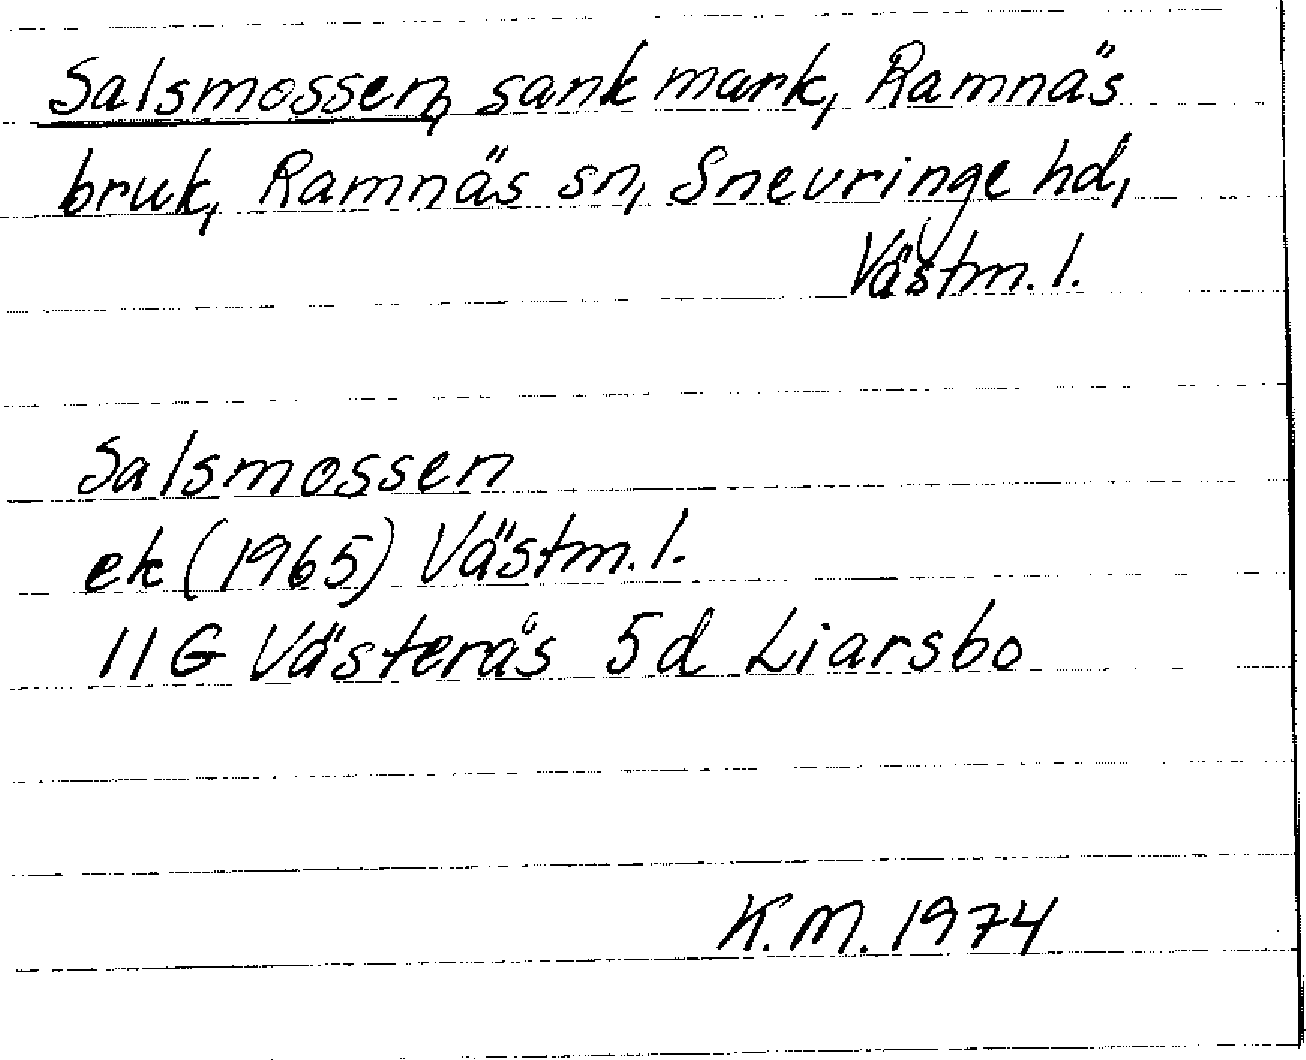 Salsmossen, sank mark, Ramnäs
bruk, Ramnäs sn, Snevringe hd,
Västm. l.
Salsmossen
ek (1965) Västm. l.
11 G Västerås 5d Liarsbo
K. M. 1974